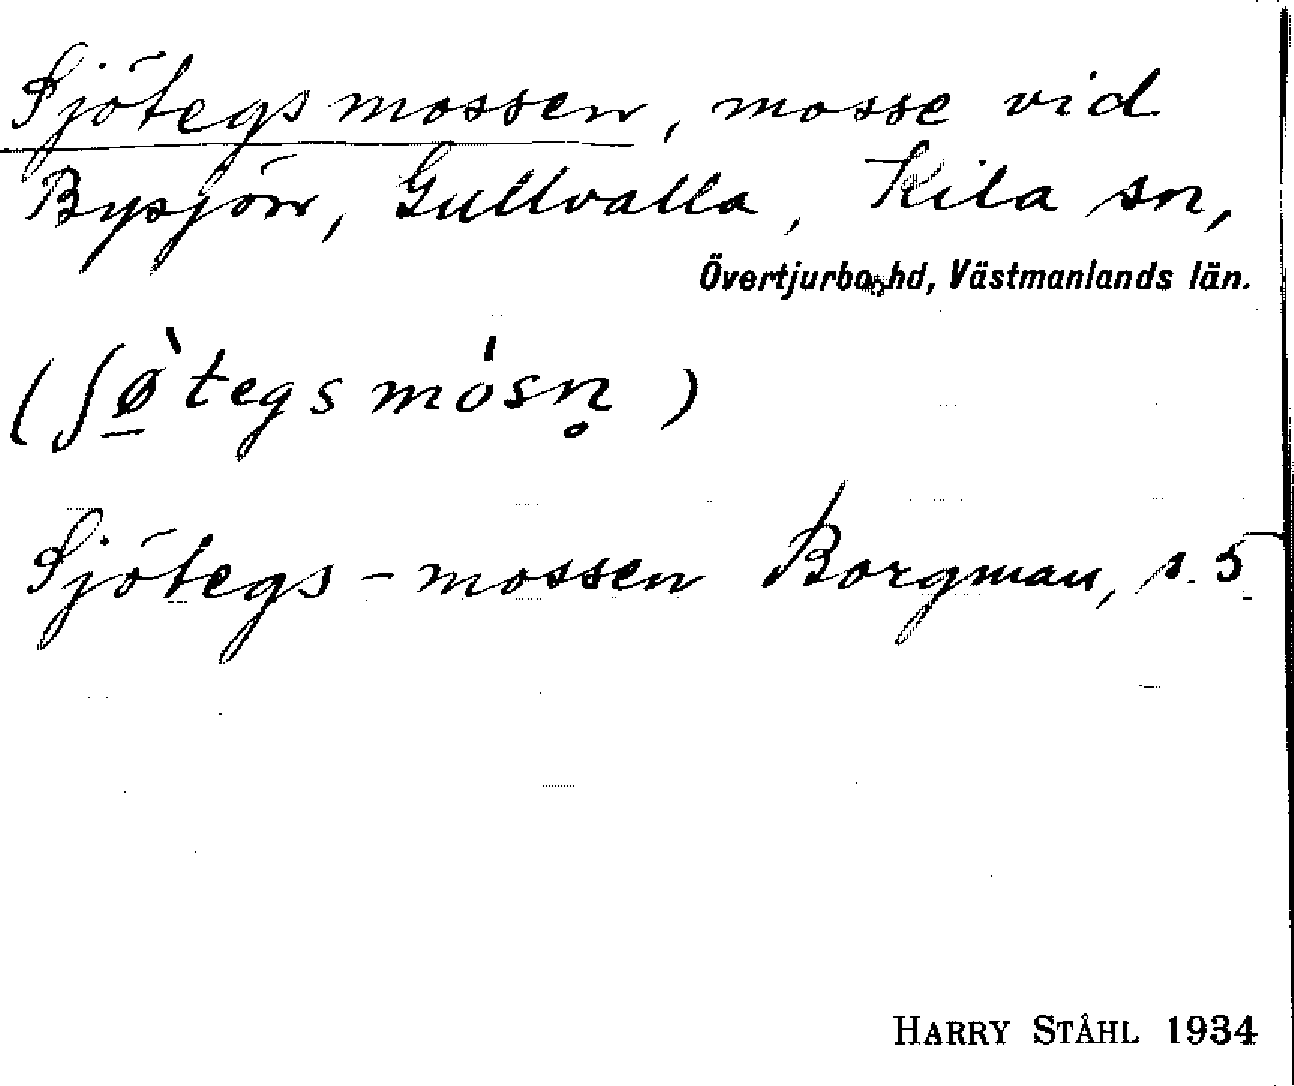 Sjötegsmossen, mosse vid
Bysjön, Gullvalla, Kila sn,
Övertjurbo hd, Västmanlands län.
(ʃø̲̀tegsmósn̥)
Sjötegs-mossen Borgman, s. 5
HARRY STÅHL 1934